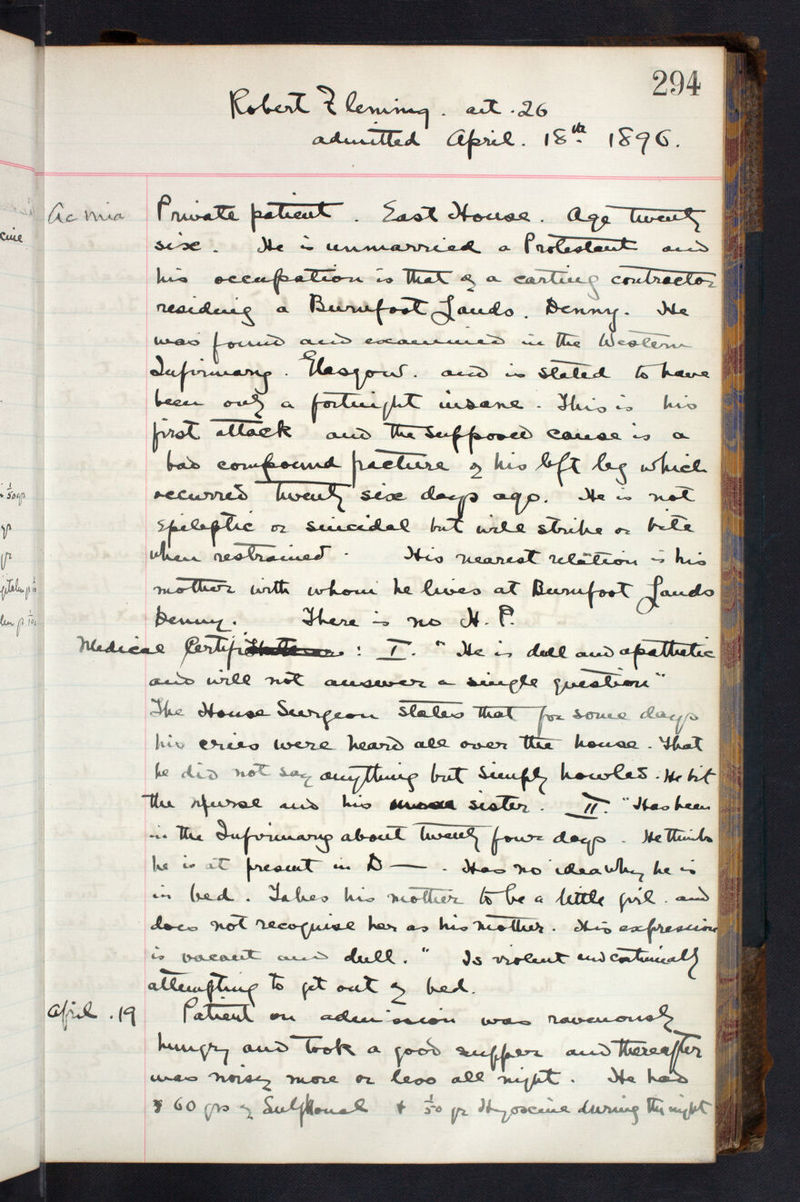 294
Robert Fleming. aet. 26
admitted April. 18th 1896.
Private patient. East House. Age twenty
six. He is unmarried a Protestant and
his occupation is that of a carting contractor
residing a Burnfoot Lands. Denny. He
was found and examined in the Western
Infirmary. Glasgow. and is stated to have
been only a fortnight insane. This is his
first attack and the supposed cause is a
bad compound fracture of his left leg which
occurred twenty six days ago. He is not
Epileptic or suicidal but will strike or bite
when restrained. His nearest relation is his
mother with whom he lives at Burnfoot Lands
Denny. There is no H. P.
Medical Certif : I. "He is dull and apathetic
and will not answer a single question"
The House Surgeon states that for some days
his cries were heard all over the house. That
he did not say anything but simply howled. He bit
the nurse and his sister. II. "Has been
in the Infirmary about twenty four days. He thinks
he is at present in D—. Has no idea why he is
in bed. Takes his mother to be a little girl and
does not recognise her as his mother. His expression
is vacant and dull." Is violent and continually
attempting to get out of bed.
April. 19 Patient on admission was ravenously
hungry and took a good supper and thereafter
was noisy more or less all night. He had
60 grs of Sulphonal + 1/50 gr Hyoscine during the night